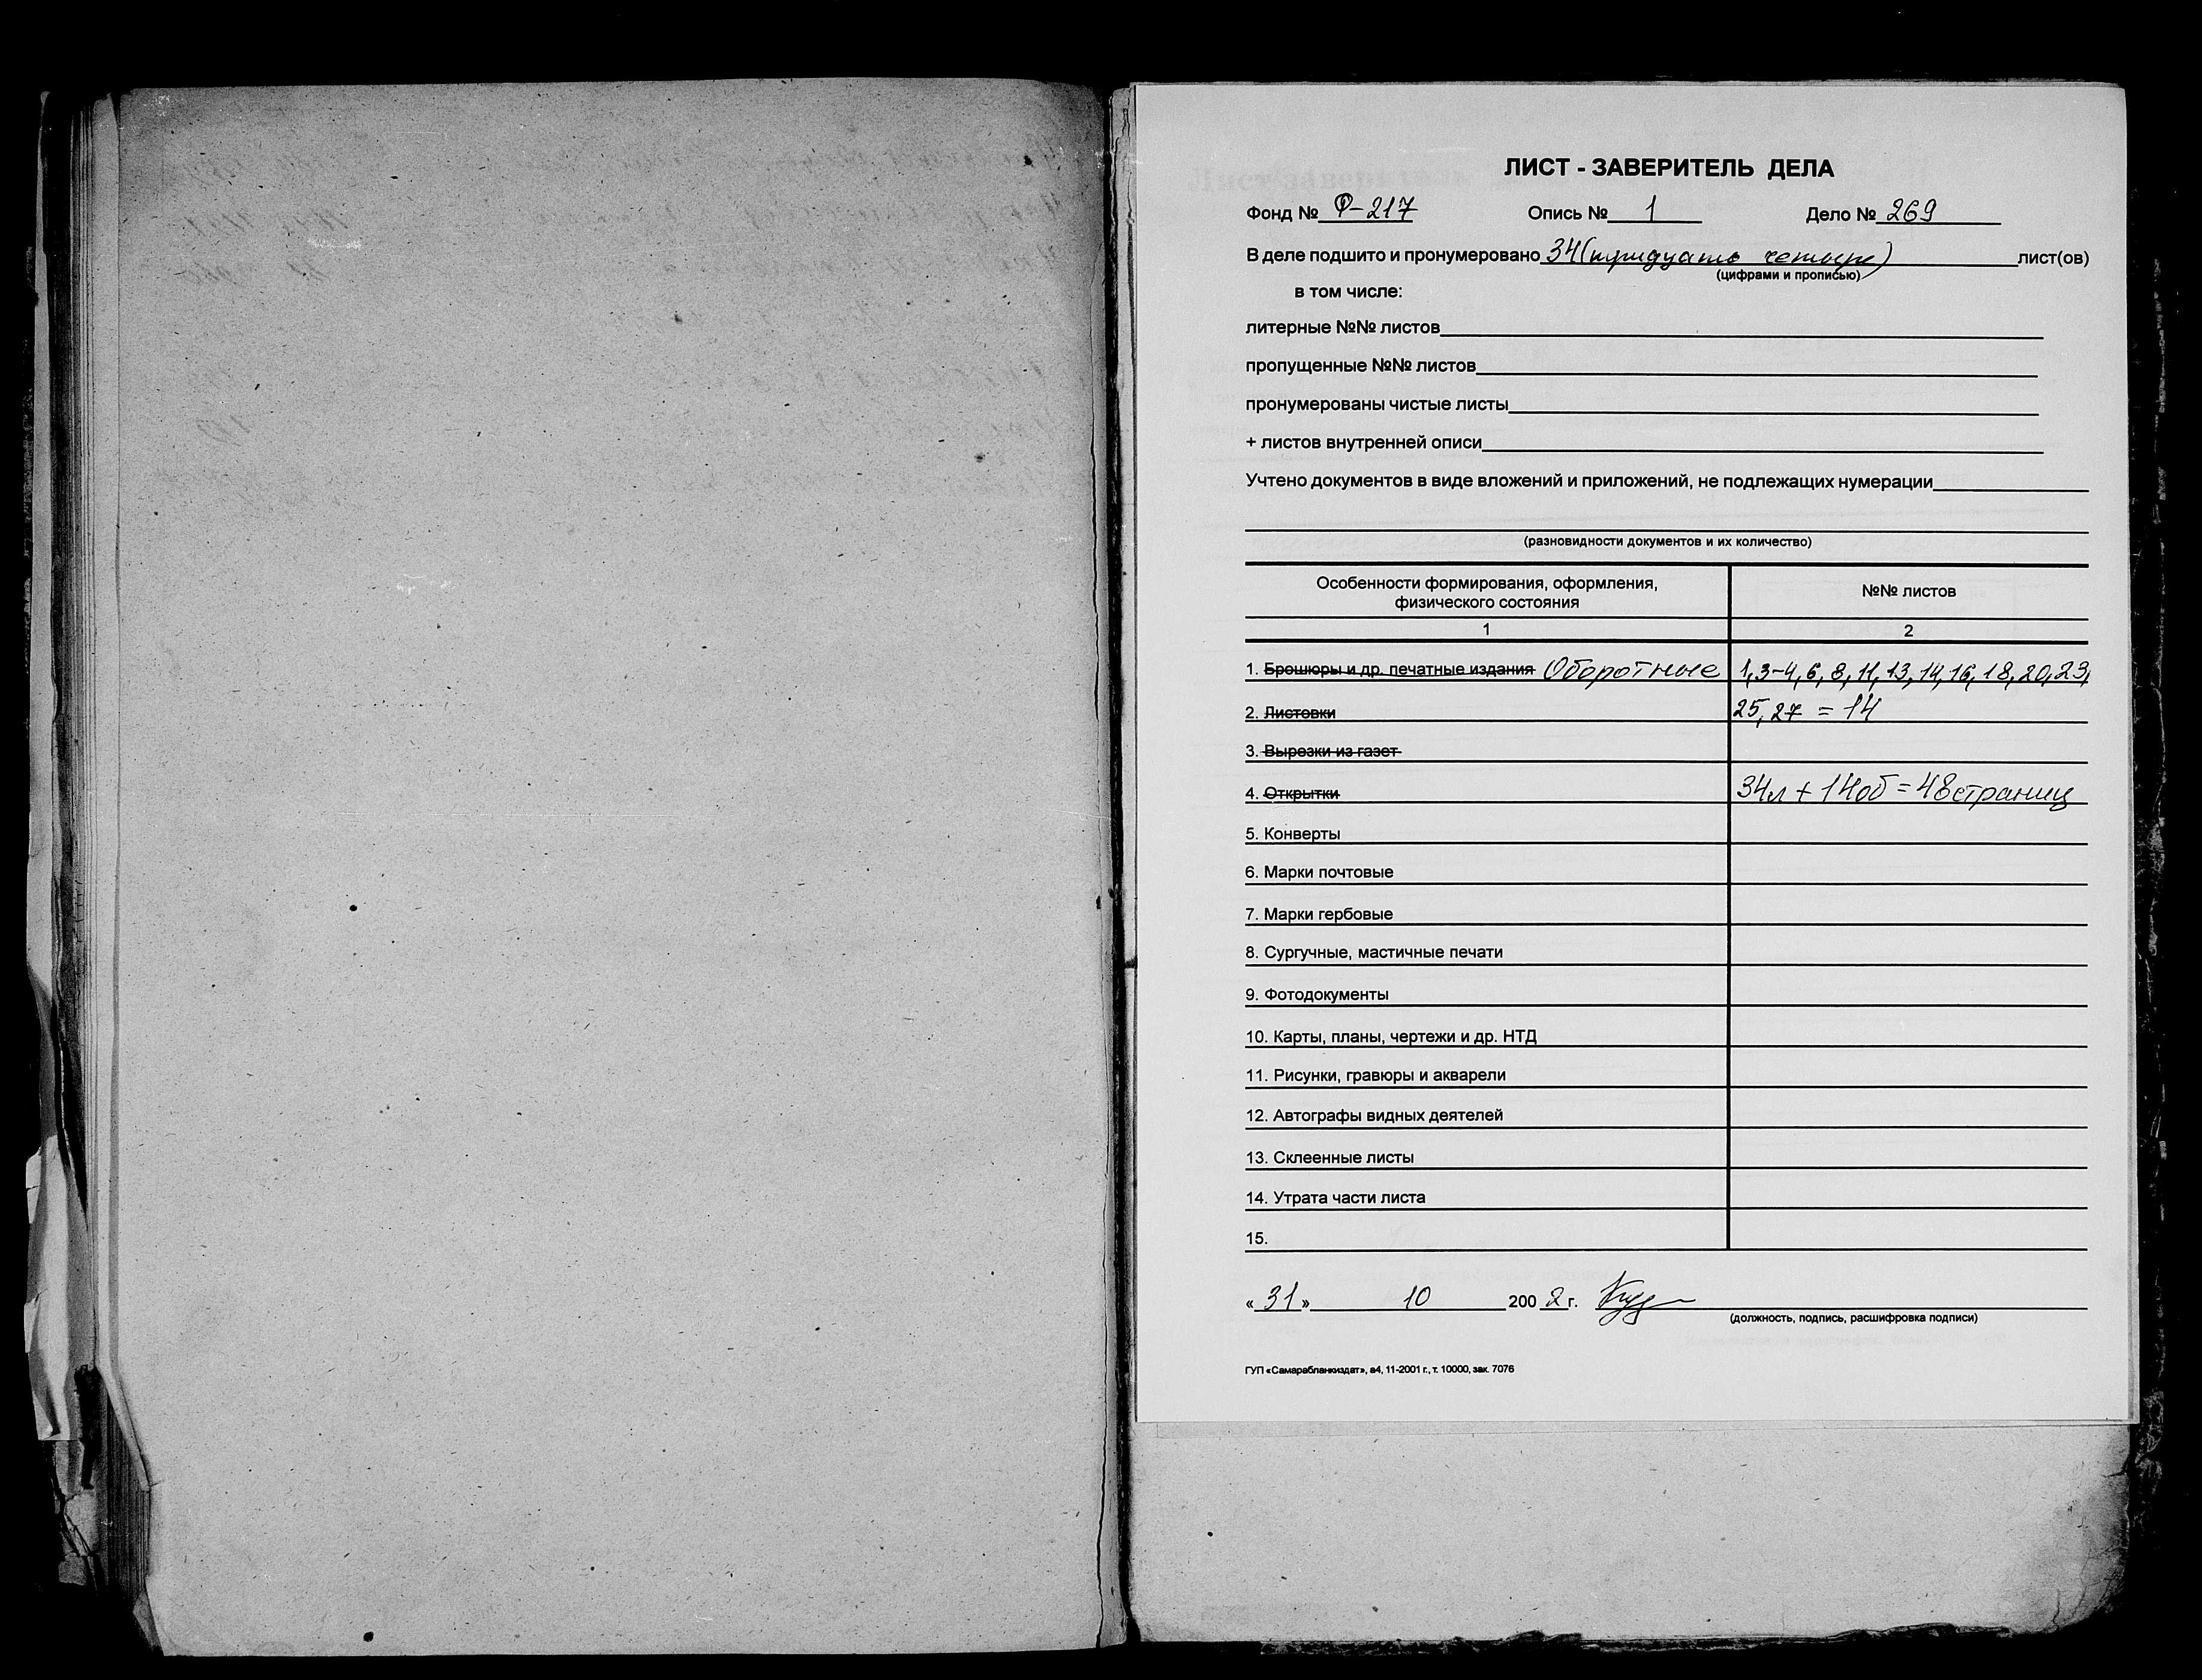 ЛИСТ - ЗАВЕРИТЕЛЬ ДЕЛА
Фонд № Р-217 Опись № 1 Дело № 269
В деле подшито и пронумеровано 34 (тридцать четыре) лист(ов)
(цифрами и прописью)
в том числе:
литерные №№ листов
пропущенные №№ листов
пронумерованы чистые листы
+ листов внутренней описи
Учтено документов в виде вложений и приложений, не подлежащих нумерации
(разновидности документов и их количество)
Особенности формирования, оформления, №№ листов
физического состояния
1 2
1. Брошюры и др. печатные издания Оборотные 1, 3-4, 6, 8, 11, 13, 14, 16, 18, 20, 23,
2. Листовки 25, 27 = 14
3. Вырезки из газет
4. Открытки 34л + 14об = 48 страниц
5. Конверты
6. Марки почтовые
7. Марки гербовые
8. Сургучные, мастичные печати
9. Фотодокументы
10. Карты, планы, чертежи и др. НТД
11. Рисунки, гравюры и акварели
12. Автографы видных деятелей
13. Склеенные листы
14. Утрата части листа
15.
« 31 » 10 200 2 г.
(должность, подпись, расшифровка подписи)
ГУП «Самарабланкиздат», а4, 11-2001 г., т. 10000, зак. 7076